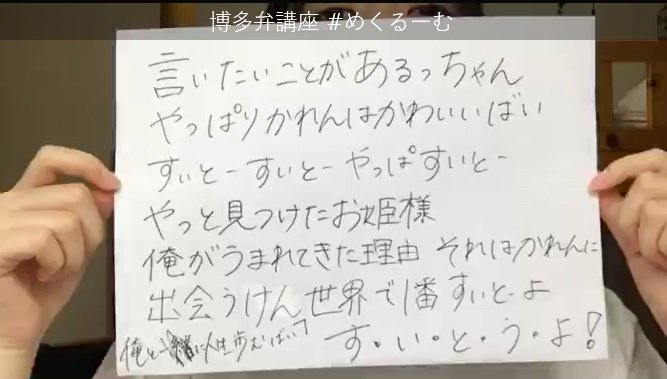 博多弁講座 #めくるーむ
言いたいことがあるっちゃん
やっぱりかれんはかわいいばい
すいとーすいとーやっぱすいとー
やっと見つけたお姫様
俺がうまれてきた理由 それはかれんに
出会うけん世界で1番すいとーよ
俺と一緒に人生歩むばい? す・い・と・う・よ!